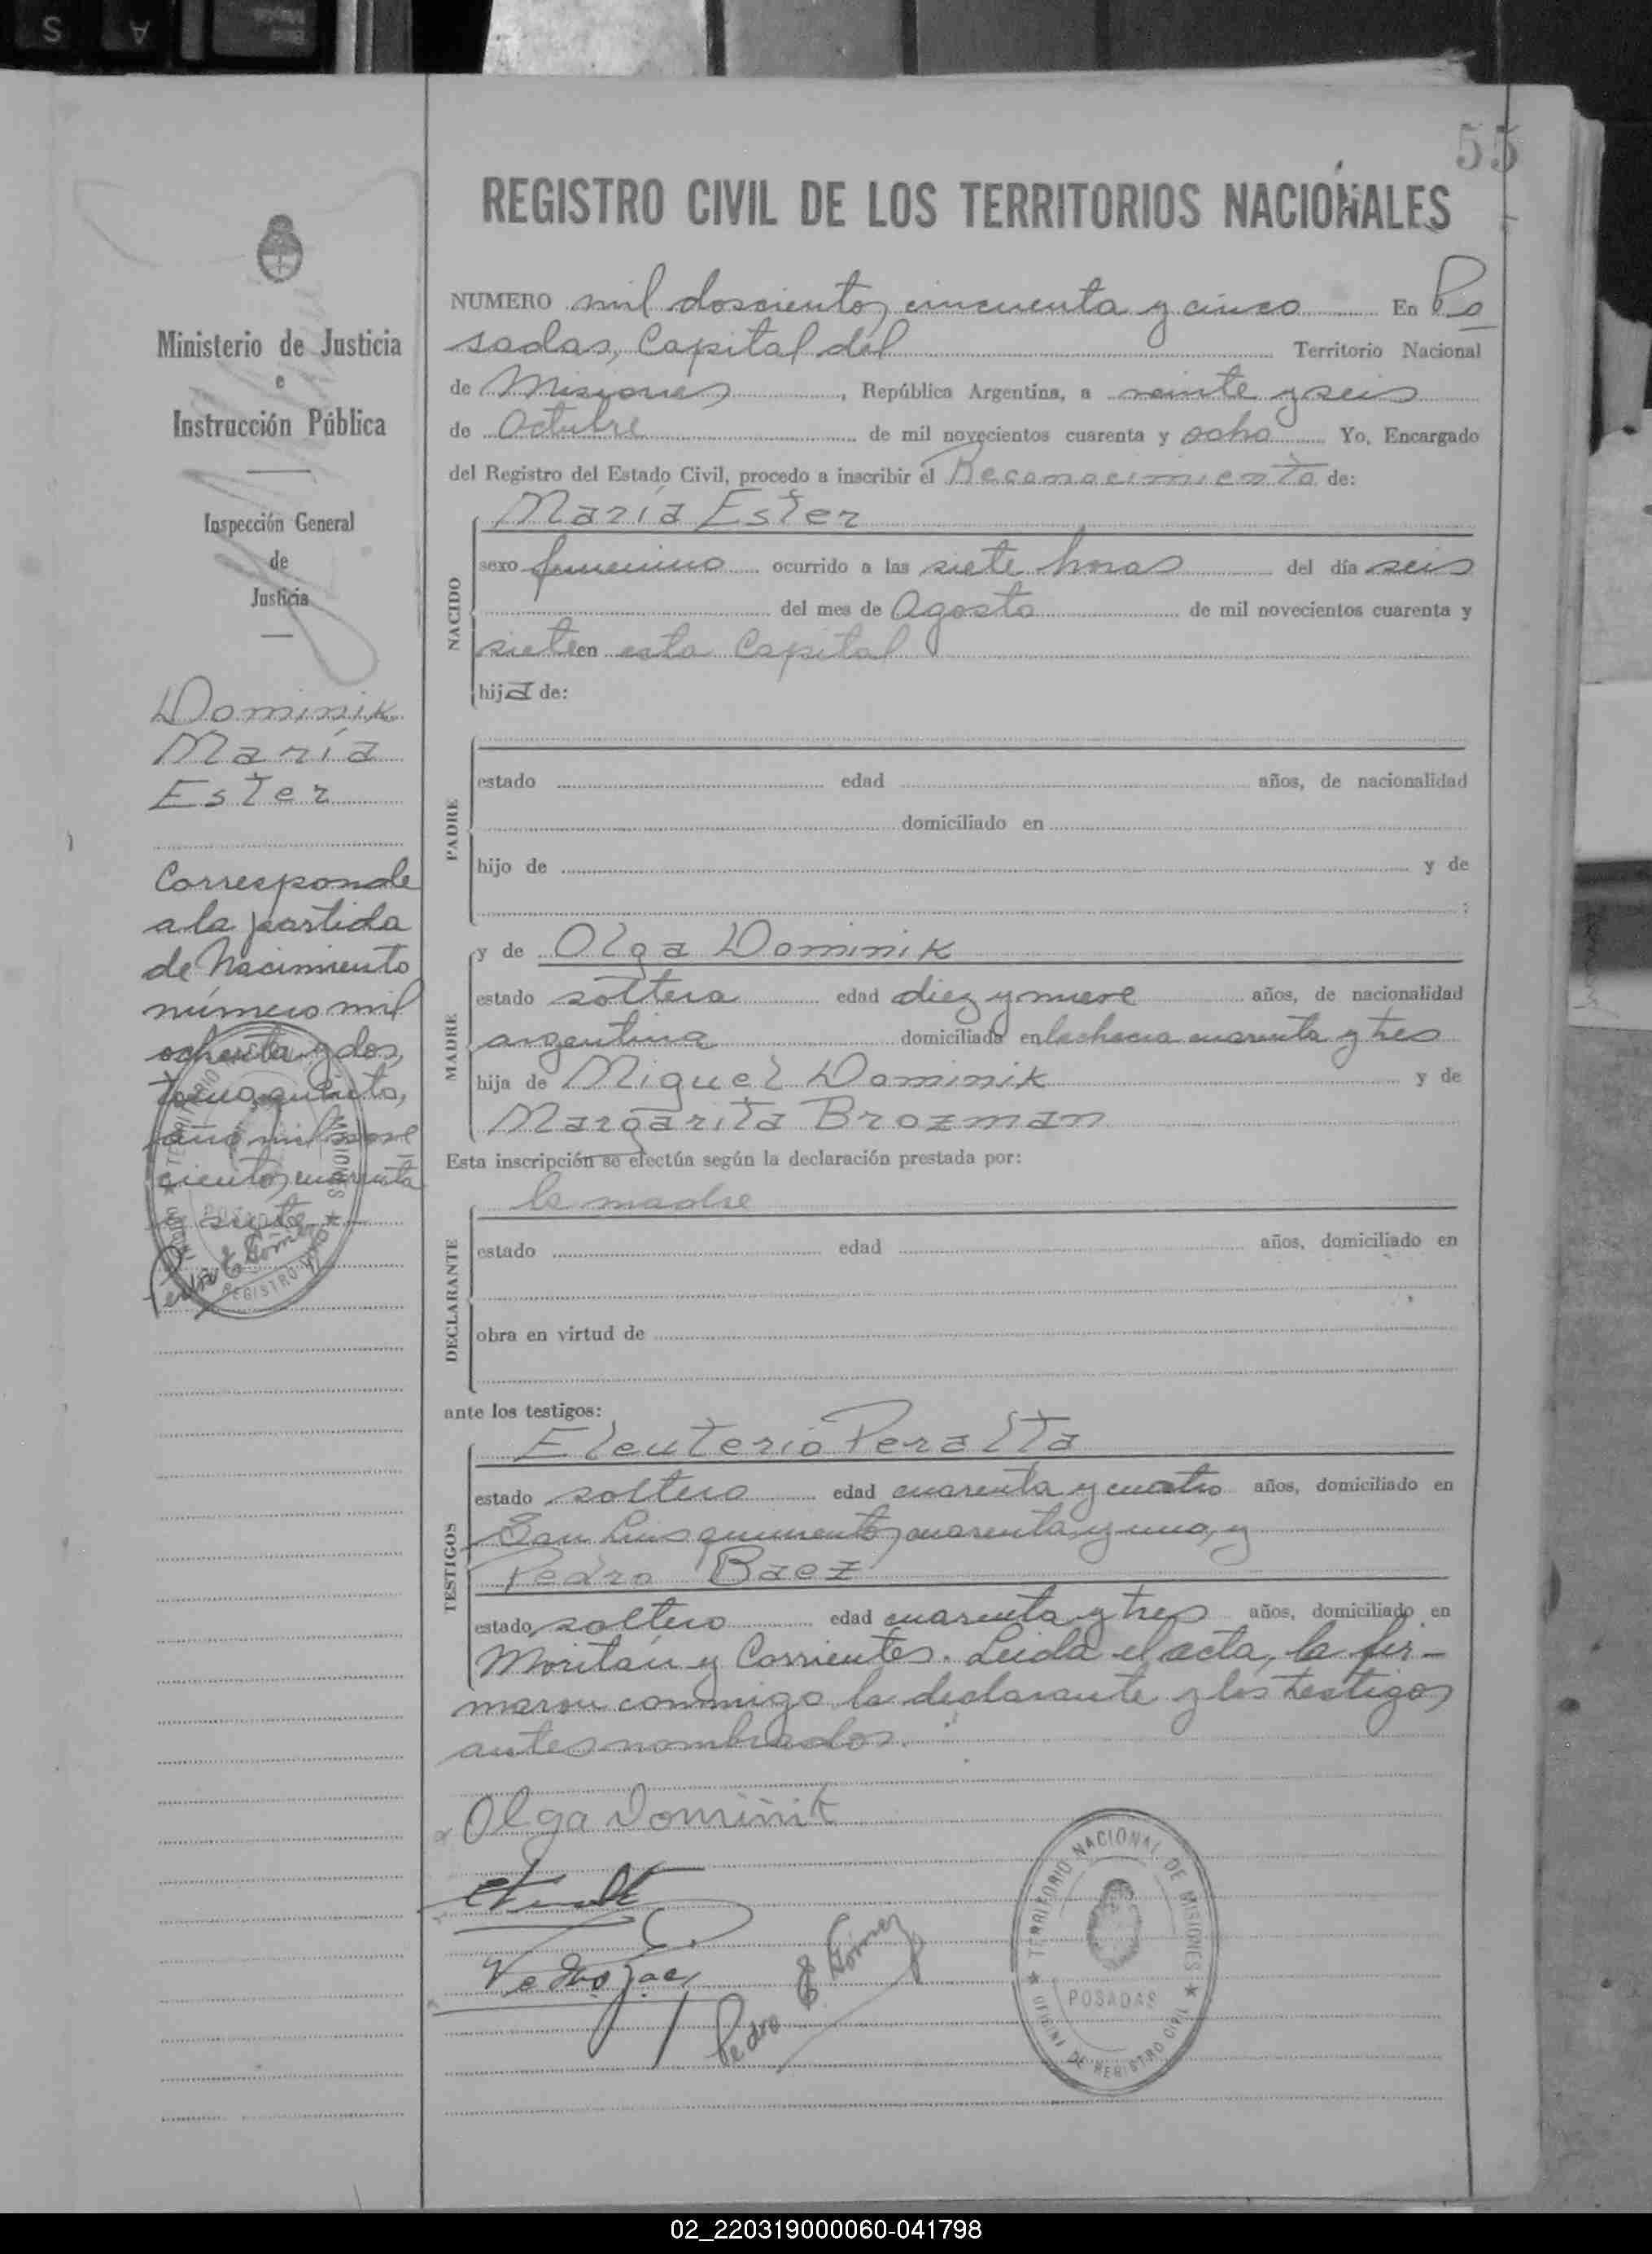 S A
55
REGISTRO CIVIL DE LOS TERRITORIOS NACIONALES
Ministerio de Justicia
e
Instrucción Pública
Inspección General
de
Justicia
Dominik
María
Ester
Corresponde
a la partida
de Nacimiento
número mil
ochenta y dos,
tomo quinto,
año mil nove
cientos cuarenta
y siete
Pedro E Gómez
NUMERO mil doscientos cincuenta y cinco En Po
sadas, Capital del Territorio Nacional
de Misiones, República Argentina, a veinte y seis
de Octubre de mil novecientos cuarenta y ocho Yo, Encargado
del Registro del Estado Civil, procedo a inscribir el Reconocimiento de:
NACIDO
María Ester
sexo femenino ocurrido a las siete horas del día seis
del mes de Agosto de mil novecientos cuarenta y
siete en esta Capital
hija de:
PADRE
estado edad años, de nacionalidad
domiciliado en
hijo de y de
;
MADRE
y de Olga Dominik
estado soltera edad diez y nueve años, de nacionalidad
argentina domiciliada en la chacra cuarenta y tres
hija de Miguel Dominik y de
Margarita Brozman
Esta inscripción se efectúa según la declaración prestada por:
DECLARANTE
la madre
estado edad años, domiciliado en
obra en virtud de
ante los testigos:
TESTIGOS
Eleuterio Peralta
estado soltero edad cuarenta y cuatro años, domiciliado en
San Luis quinientos cuarenta y uno, y
Pedro Baez
estado soltero edad cuarenta y tres años, domiciliado en
Moritán y Corrientes. Leida el acta, la fir-
maron conmigo la declarante y los testigos
antes nombrados.
Olga Dominik
Pedro Baez
Pedro E Gómez
TERRITORIO NACIONAL DE MISIONES
POSADAS
OFICINA DE REGISTRO CIVIL
02_220319000060-041798